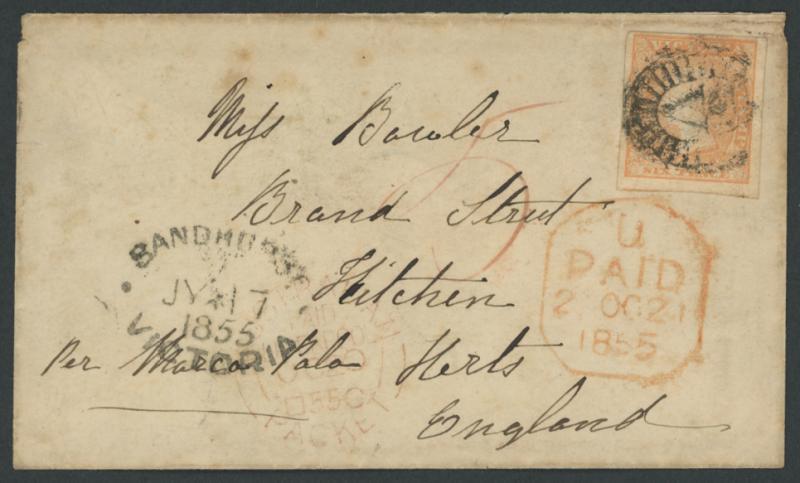 Miss Bowler
Brand Street
Hitchin
Herts
England
Per Marco Polo
SANDHURST
JY 17
1855
VICTORIA
U
PAID
2 OC 21
1855
SIX
V
PACKE